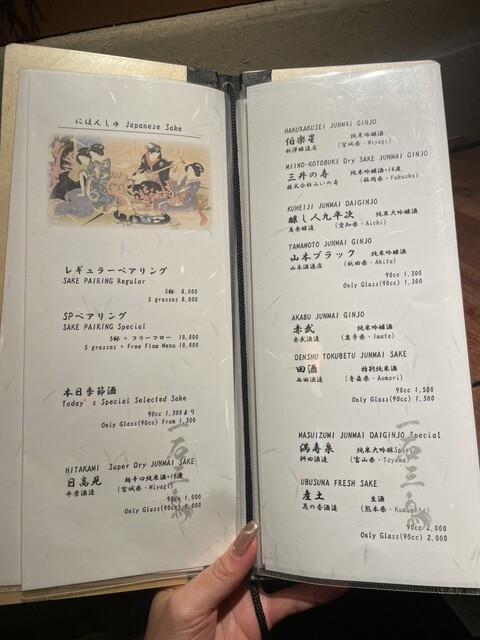 にほんしゅ Japanese Sake
レギュラーペアリング
SAKE PAIRING Regular
5杯 8,000
5 grasses 8,000
SPペアリング
SAKE PAIRING Special
5杯 + フリーフロー 10,000
5 grasses + Free Flow Menu 10,000
本日季節酒
Today's Special Selected Sake
90cc 1,300より
Only Glass(90cc) From 1,300
HITAKAMI Super Dry JUNMAI SAKE
日高見 超辛口純米酒+10度
平孝酒造 (宮城県・Miyagi)
90cc 1,000
Only Glass(90cc) 1,000
一石三鳥
HAKURAKUSEI JUNMAI GINJO
伯楽星 純米吟醸酒
新澤醸造店 (宮城県・Miyagi)
MIINO-KOTOBUKI Dry SAKE JUNMAI GINJO
三井の寿 純米吟醸酒+14度
株式会社みいの寿 (福岡県・Fukuoka)
KUHEIJI JUNMAI DAIGINJO
醸し人九平次 純米大吟醸酒
萬乗醸造 (愛知県・Aichi)
YAMAMOTO JUNMAI GINJO
山本ブラック 純米吟醸酒
山本酒造店 (秋田県・Akita)
90cc 1,300
Only Glass(90cc) 1,300
AKABU JUNMAI GINJO
赤武 純米吟醸酒
赤武酒造 (岩手県・Iwate)
DENSHU TOKUBETU JUNMAI SAKE
田酒 特別純米酒
西田酒造 (青森県・Aomori)
90cc 1,500
Only Glass(90cc) 1,500
MASUIZUMI JUNMAI DAIGINJO Special
満寿泉 純米大吟醸酒Special
桝田酒造 (富山県・Toyama)
UBUSUNA FRESH SAKE
産土 生酒
花の香酒造 (熊本県・Kumamoto)
90cc 2,000
Only Glass(90cc) 2,000
一石三鳥